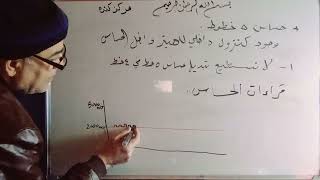 بسم الله الرحمن الرحيم
مركز كندة
* حساس ٥ خطوط
وجود كنترول داخلي للهيتر داخل الحساس
١ - لا نستطيع تبديل حساس ٥ خط مع ٤ خط
قراءات الحساس